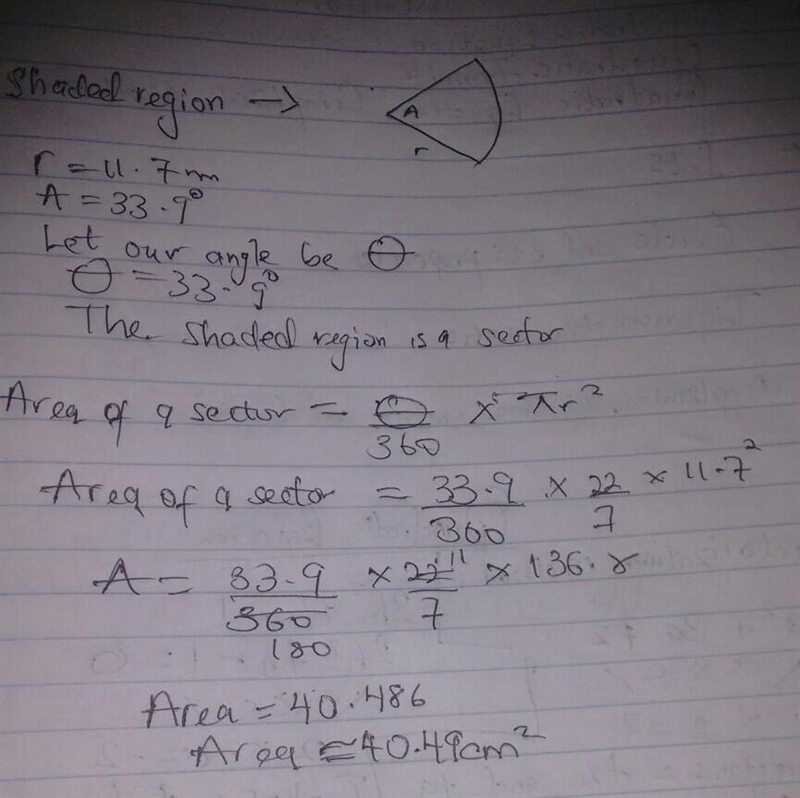 Shaded region →
A
r
r = 11.7 cm
A = 33.9°
Let our angle be θ
θ = 33.9°
The shaded region is a sector
Area of a sector = θ/360 × πr²
Area of a sector = 33.9/360 × 22/7 × 11.7²
A = 33.9/360 × 22/7 × 136.8
11
180
Area = 40.486
Area = 40.49cm²